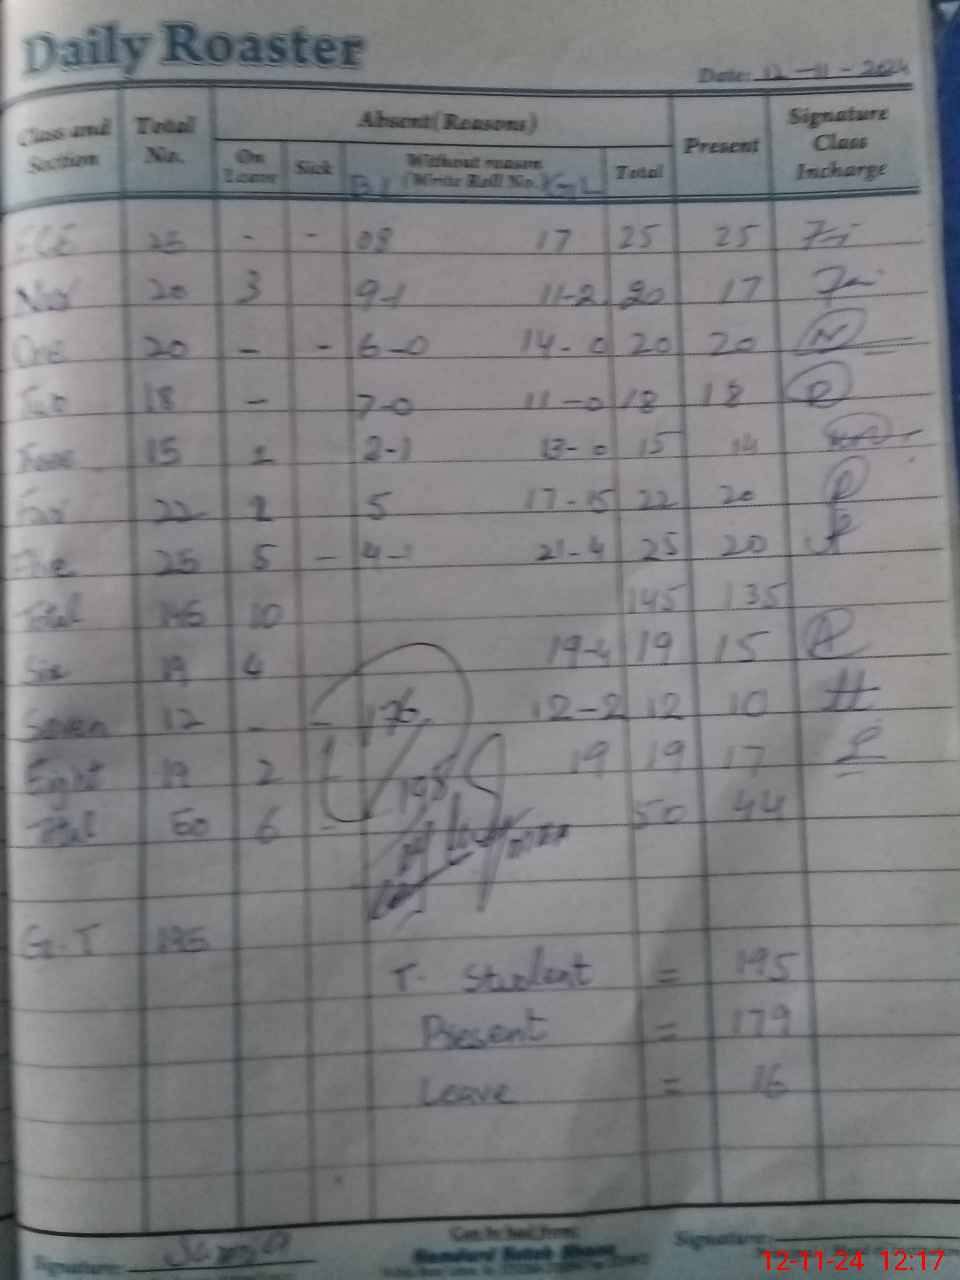 Daily Roaster
Date: 12-11-2024
Class and Section Total No. Absent (Reasons) Present Signature Class Incharge
On Leave Sick Without reason (Write Roll No.) Total
ECE 25 - - 08 17 25 25
Nur 20 3 9-1 11-2 20 17
One 20 - - 6-0 14-0 20 20
Two 18 - 7-0 11-0 18 18
15 1 2-1 13-0 15 14
22 2 5 17-15 22 20
Five 25 5 - 4- 21-4 25 20
Total 145 10 145 135
Six 19 4 19-4 19 15
Seven 12 - - 12-2 12 10
176
Eight 19 2 19 19 17
195
Total 50 6 - 50 44
G.T 195
T. Student = 195
Present = 179
Leave = 16
Can be had from:
Signature: Signature:
12-11-24 12:17